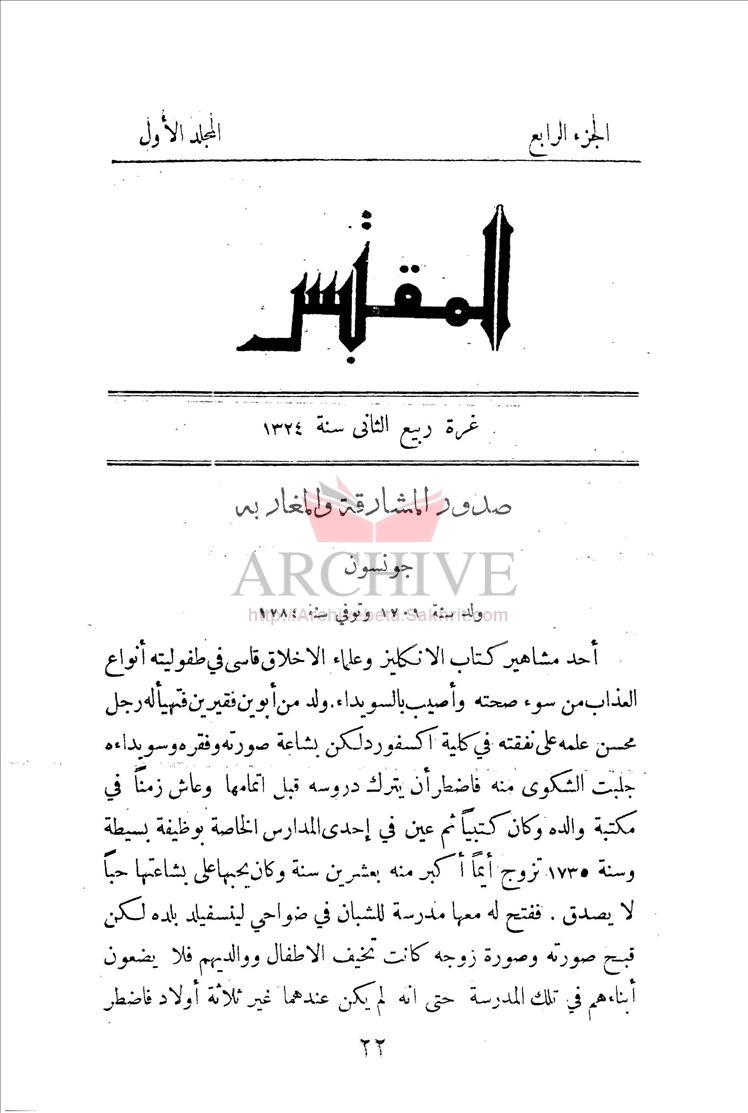 الجزء الرابع
المجلد الأول
المقتبس
غرة ربيع الثانى سنة ١٣٢٤
صدور المشارقة والمغاربه
ARCHIVE
جونسون
http://Archivebeta.Sakhrit.com
ولد سنة ١٧٠٩ وتوفي سنة ١٧٨٤
أحد مشاهير كتاب الانكليز وعلماء الاخلاق قاسى في طفوليته أنواع
العذاب من سوء صحته وأصيب بالسويداء. ولد من أبوين فقيرين فتهيأ له رجل
محسن علمه على نفقته في كلية اكسفورد لكن بشاعة صورته وفقره وسويداءه
جلبت الشكوى منه فاضطر أن يترك دروسه قبل اتمامها وعاش زمناً في
مكتبة والده وكان كتبياً ثم عين في إحدى المدارس الخاصة بوظيفة بسيطة
وسنة ١٧٣٥ تزوج أيماً أكبر منه بعشرين سنة وكان يحبها على بشاعتها حباً
لا يصدق . ففتح له معها مدرسة للشبان في ضواحي لينسفيلد بلده لكن
قبح صورته وصورة زوجه كانت تخيف الاطفال ووالديهم فلا يضعون
أبناءهم في تلك المدرسة حتى انه لم يكن عندهما غير ثلاثة أولاد فاضطر
٢٢